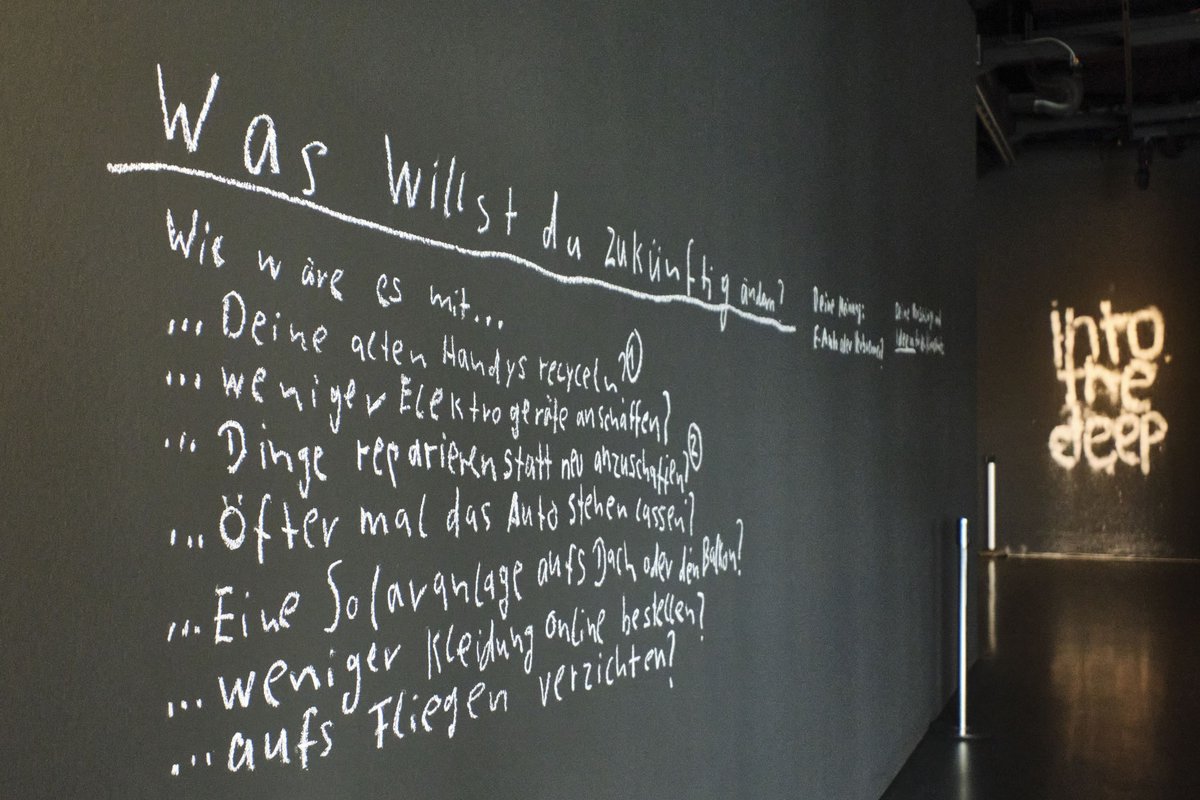 Was willst du zukünftig ändern?
Wie wäre es mit...
... Deine alten Handys recyceln? ①
... weniger Elektrogeräte anschaffen?
... Dinge reparieren statt neu anzuschaffen? ②
... Öfter mal das Auto stehen lassen?
... Eine Solaranlage aufs Dach oder den Balkon?
... weniger Kleidung online bestellen?
... aufs Fliegen verzichten?
Deine Meinung:
E-Auto oder
Deine
Ideen
into
the
deep